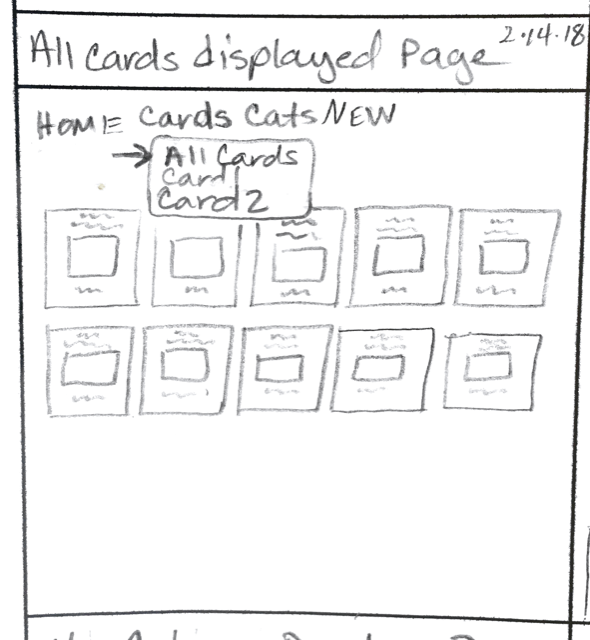 All Cards displayed Page 2.14.18
HOME Cards Cats NEW
All Cards
Card 1
Card 2